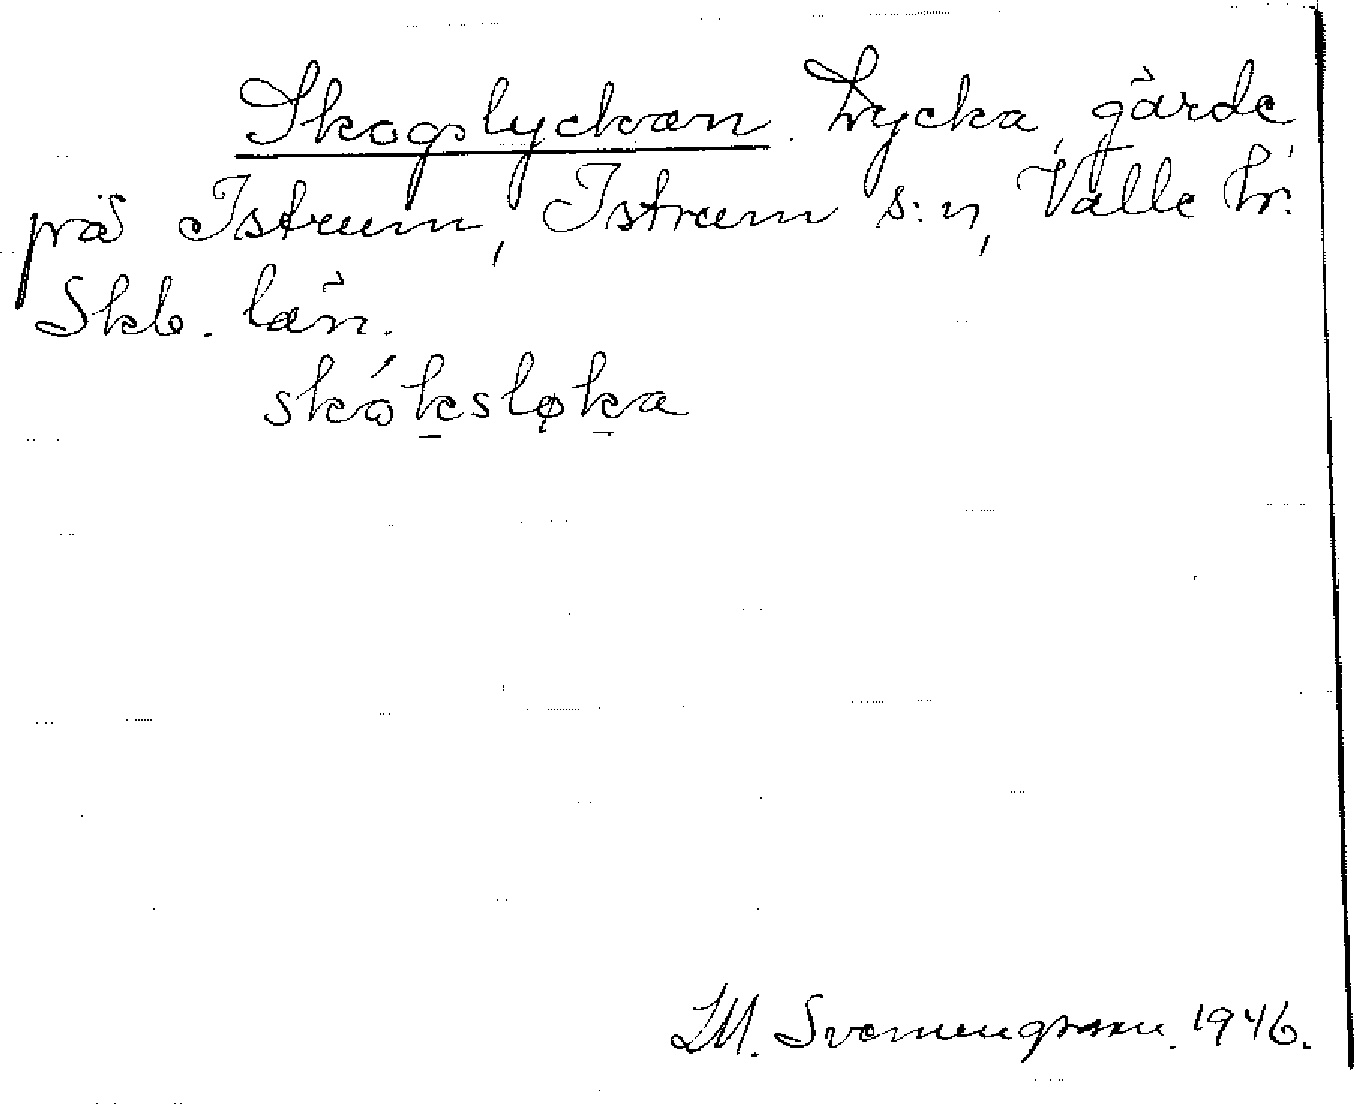 Skogslyckan. Lycka, gärde
på Istrum, Istrum s:n, Valle hr.
Skb. län.
skóksløka
LM. Svenungsson. 1946.